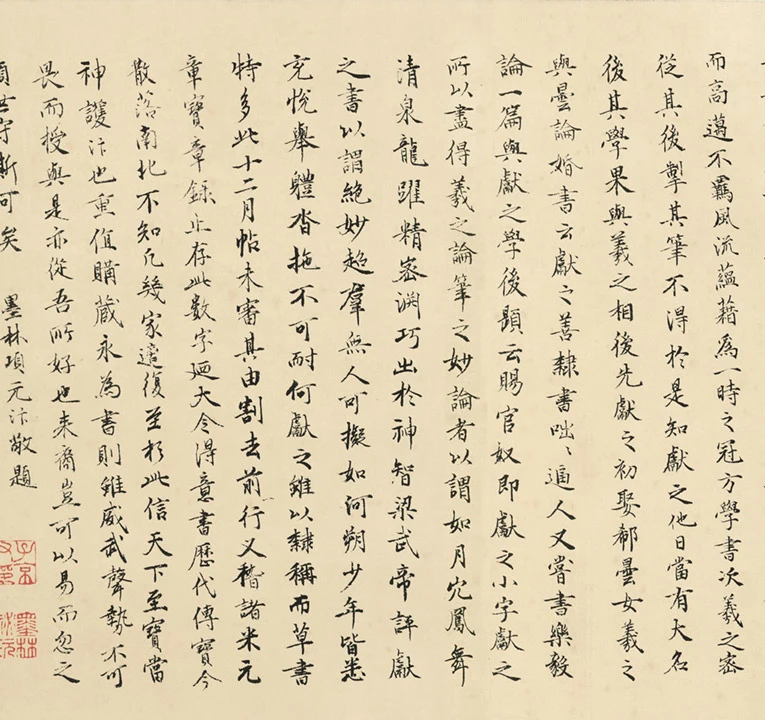 而高邁不羈風流蘊藉為一時之冠方學書次羲之密
從其後掣其筆不得於是知獻之他日當有大名
後其學果與羲之相後先獻之初娶郗曇女羲之
與曇論婚書云獻之善隸書咄〻逼人又嘗書樂毅
論一篇與獻之學後題云賜官奴即獻之小字獻之
所以盡得羲之論筆之妙論者以謂如丹穴鳳舞
清泉龍躍精密淵巧出於神智梁武帝評獻
之書以謂絕妙超羣無人可擬如河朔少年皆悉
充悅舉軆沓拖不可耐何獻之雖以隸稱而草書
特多此十二月帖未審其由割去前行又稽諸米元
章寶章錄止存此數字廼大令得意書歷代傳寶今
散落南北不知凡幾家復至於此信天下至寶當
神護汴也重值購藏永為書則雖威武聲勢不可
畏而授與是亦從吾所好也来裔豈可以易而忽之
世守斯可矣 墨林項元汴敬題
子京父印
墨林